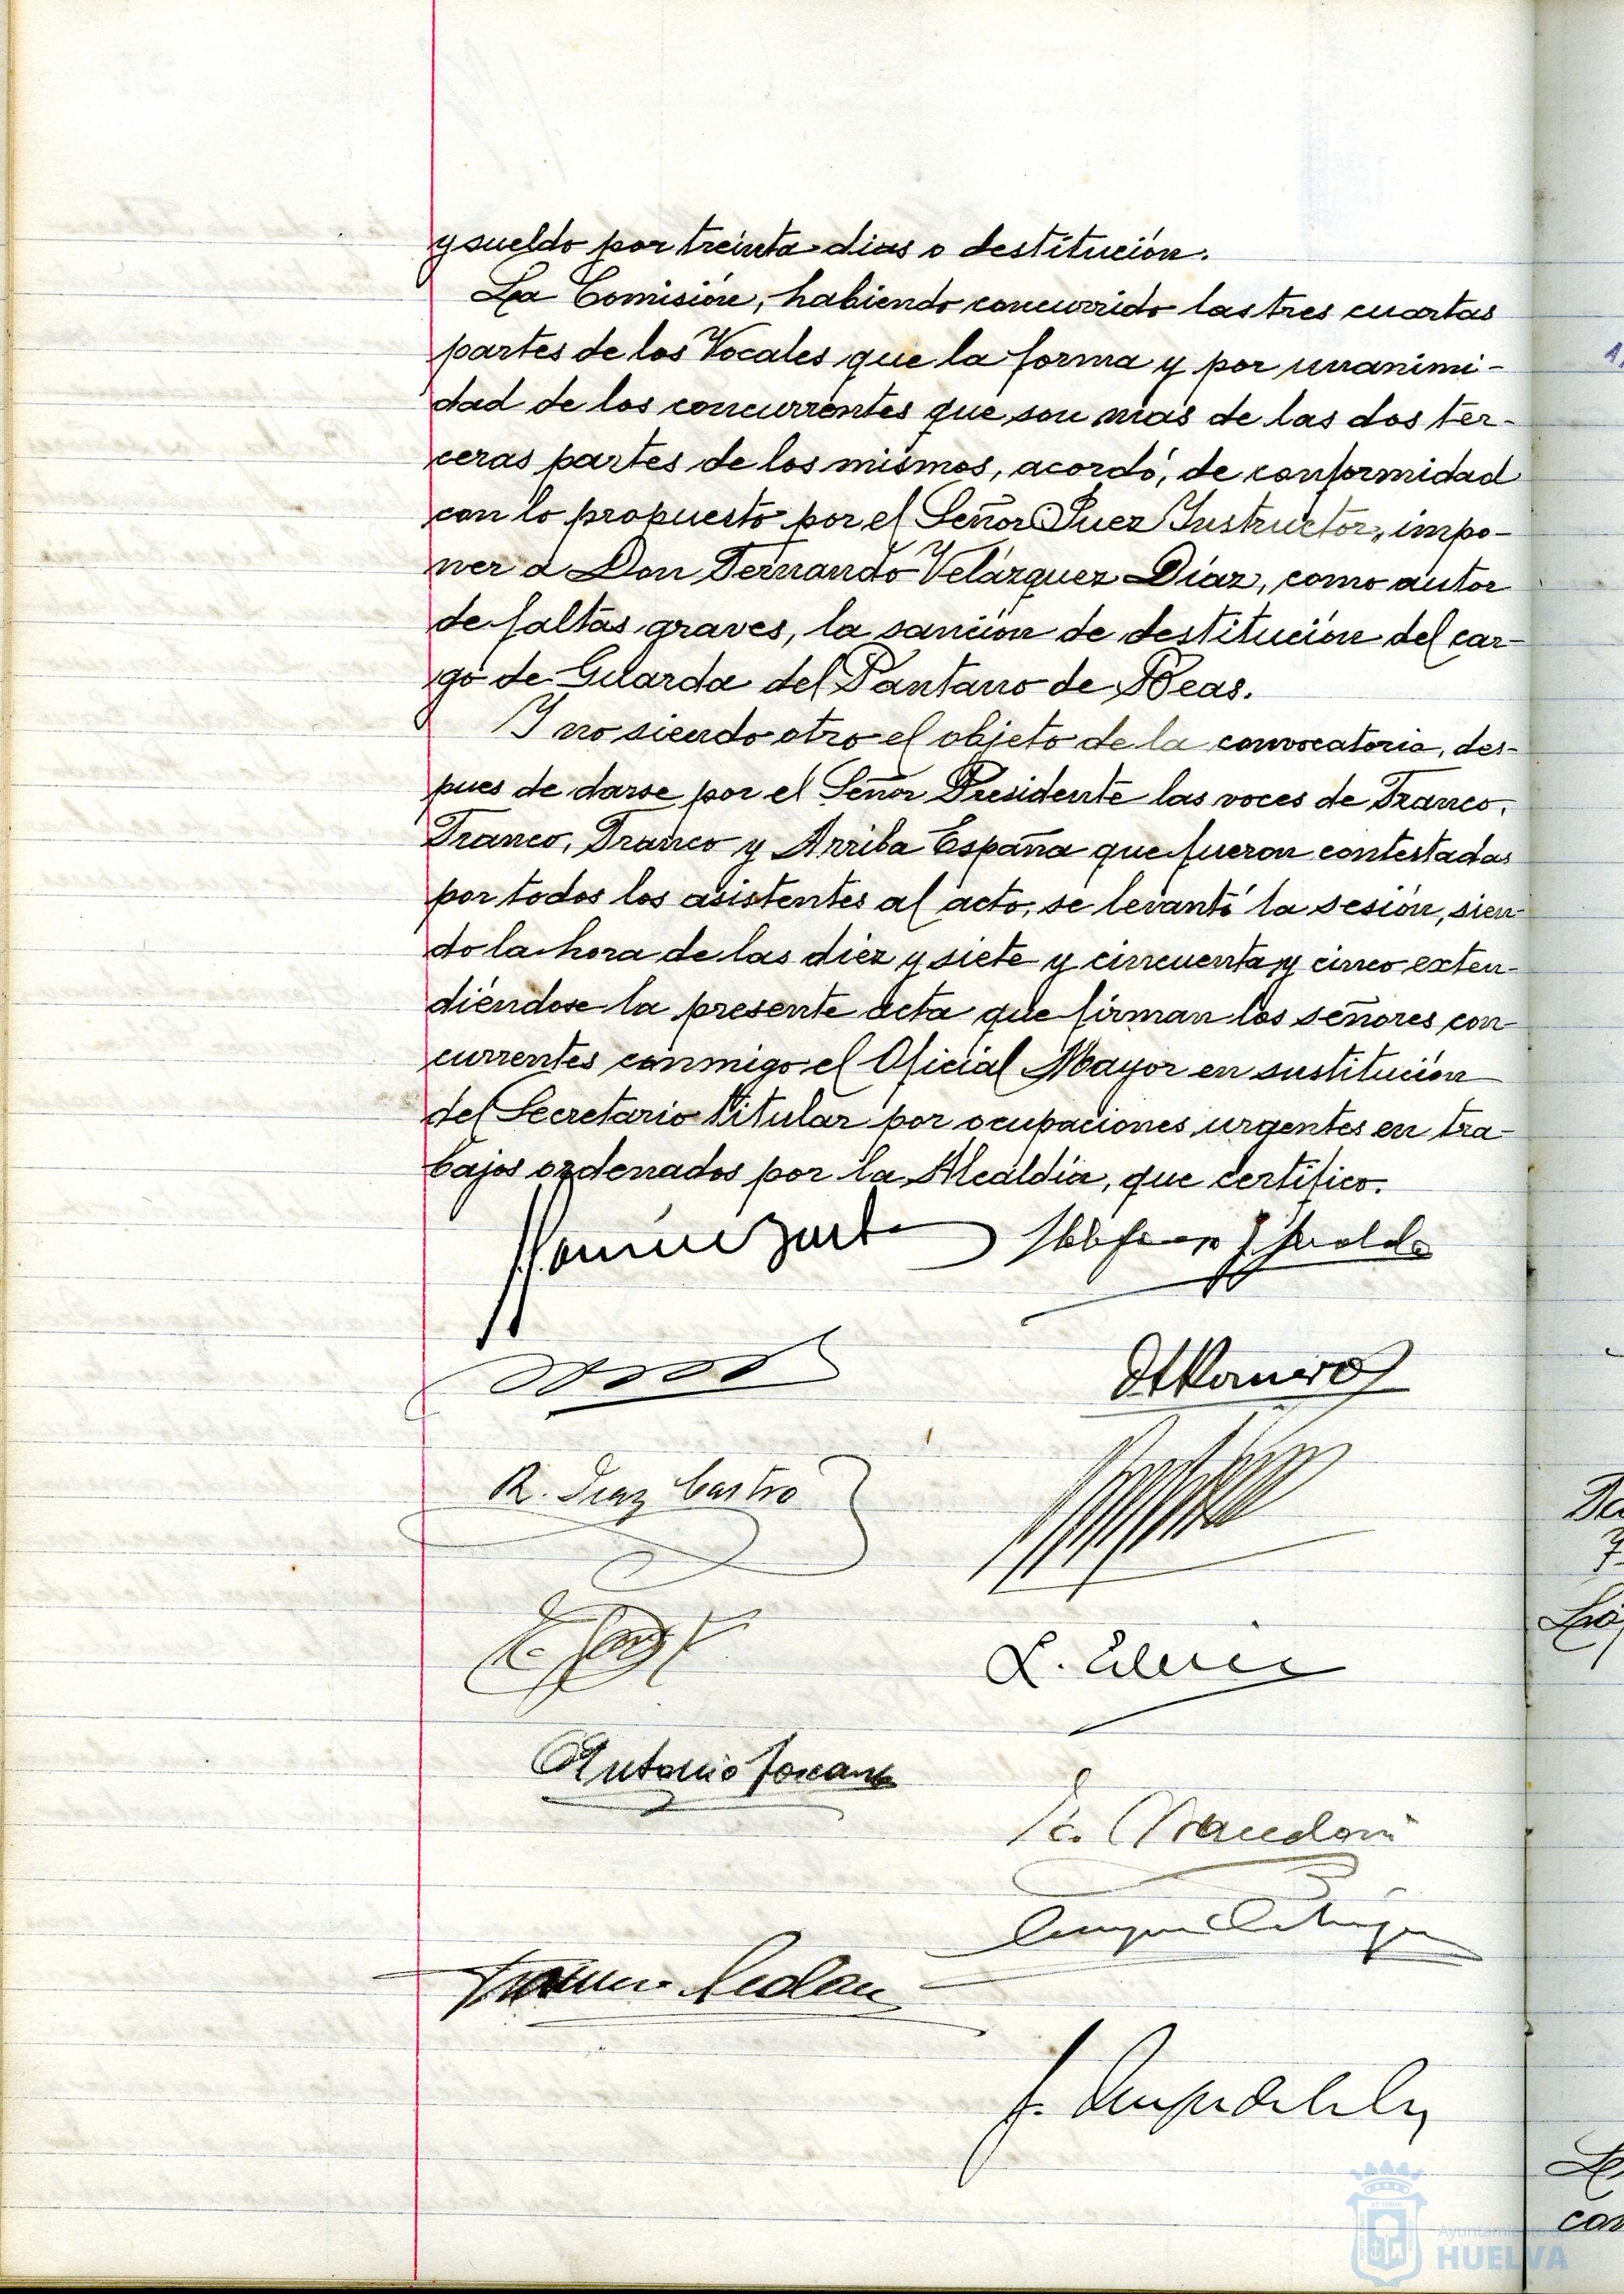 y sueldo por treinta dias o destitución.
La Comisión, habiendo concurrido las tres cuartas
partes de los Vocales que la forma y por unanimi-
dad de los concurrentes que son mas de las dos ter-
ceras partes de los mismos, acordó, de conformidad
con lo propuesto por el Señor Juez Instructor, impo-
ner a Don Fernando Velázquez Díaz, como autor
de faltas graves, la sanción de destitución del car-
go de Guarda del Pantano de Beas.
Y no siendo otro el objeto de la convocatoria, des-
pues de darse por el Señor Presidente las voces de Franco,
Franco, Franco y Arriba España que fueron contestadas
por todos los asistentes al acto, se levantó la sesión, sien-
do la hora de las diez y siete y cincuenta y cinco exten-
diéndose la presente acta que firman los señores con-
currentes conmigo el Oficial Mayor en sustitución
del Secretario titular por ocupaciones urgentes en tra-
bajos ordenados por la Alcaldía, que certifico.
R. Diaz Castro
Antonio
Ayuntamiento
HUELVA